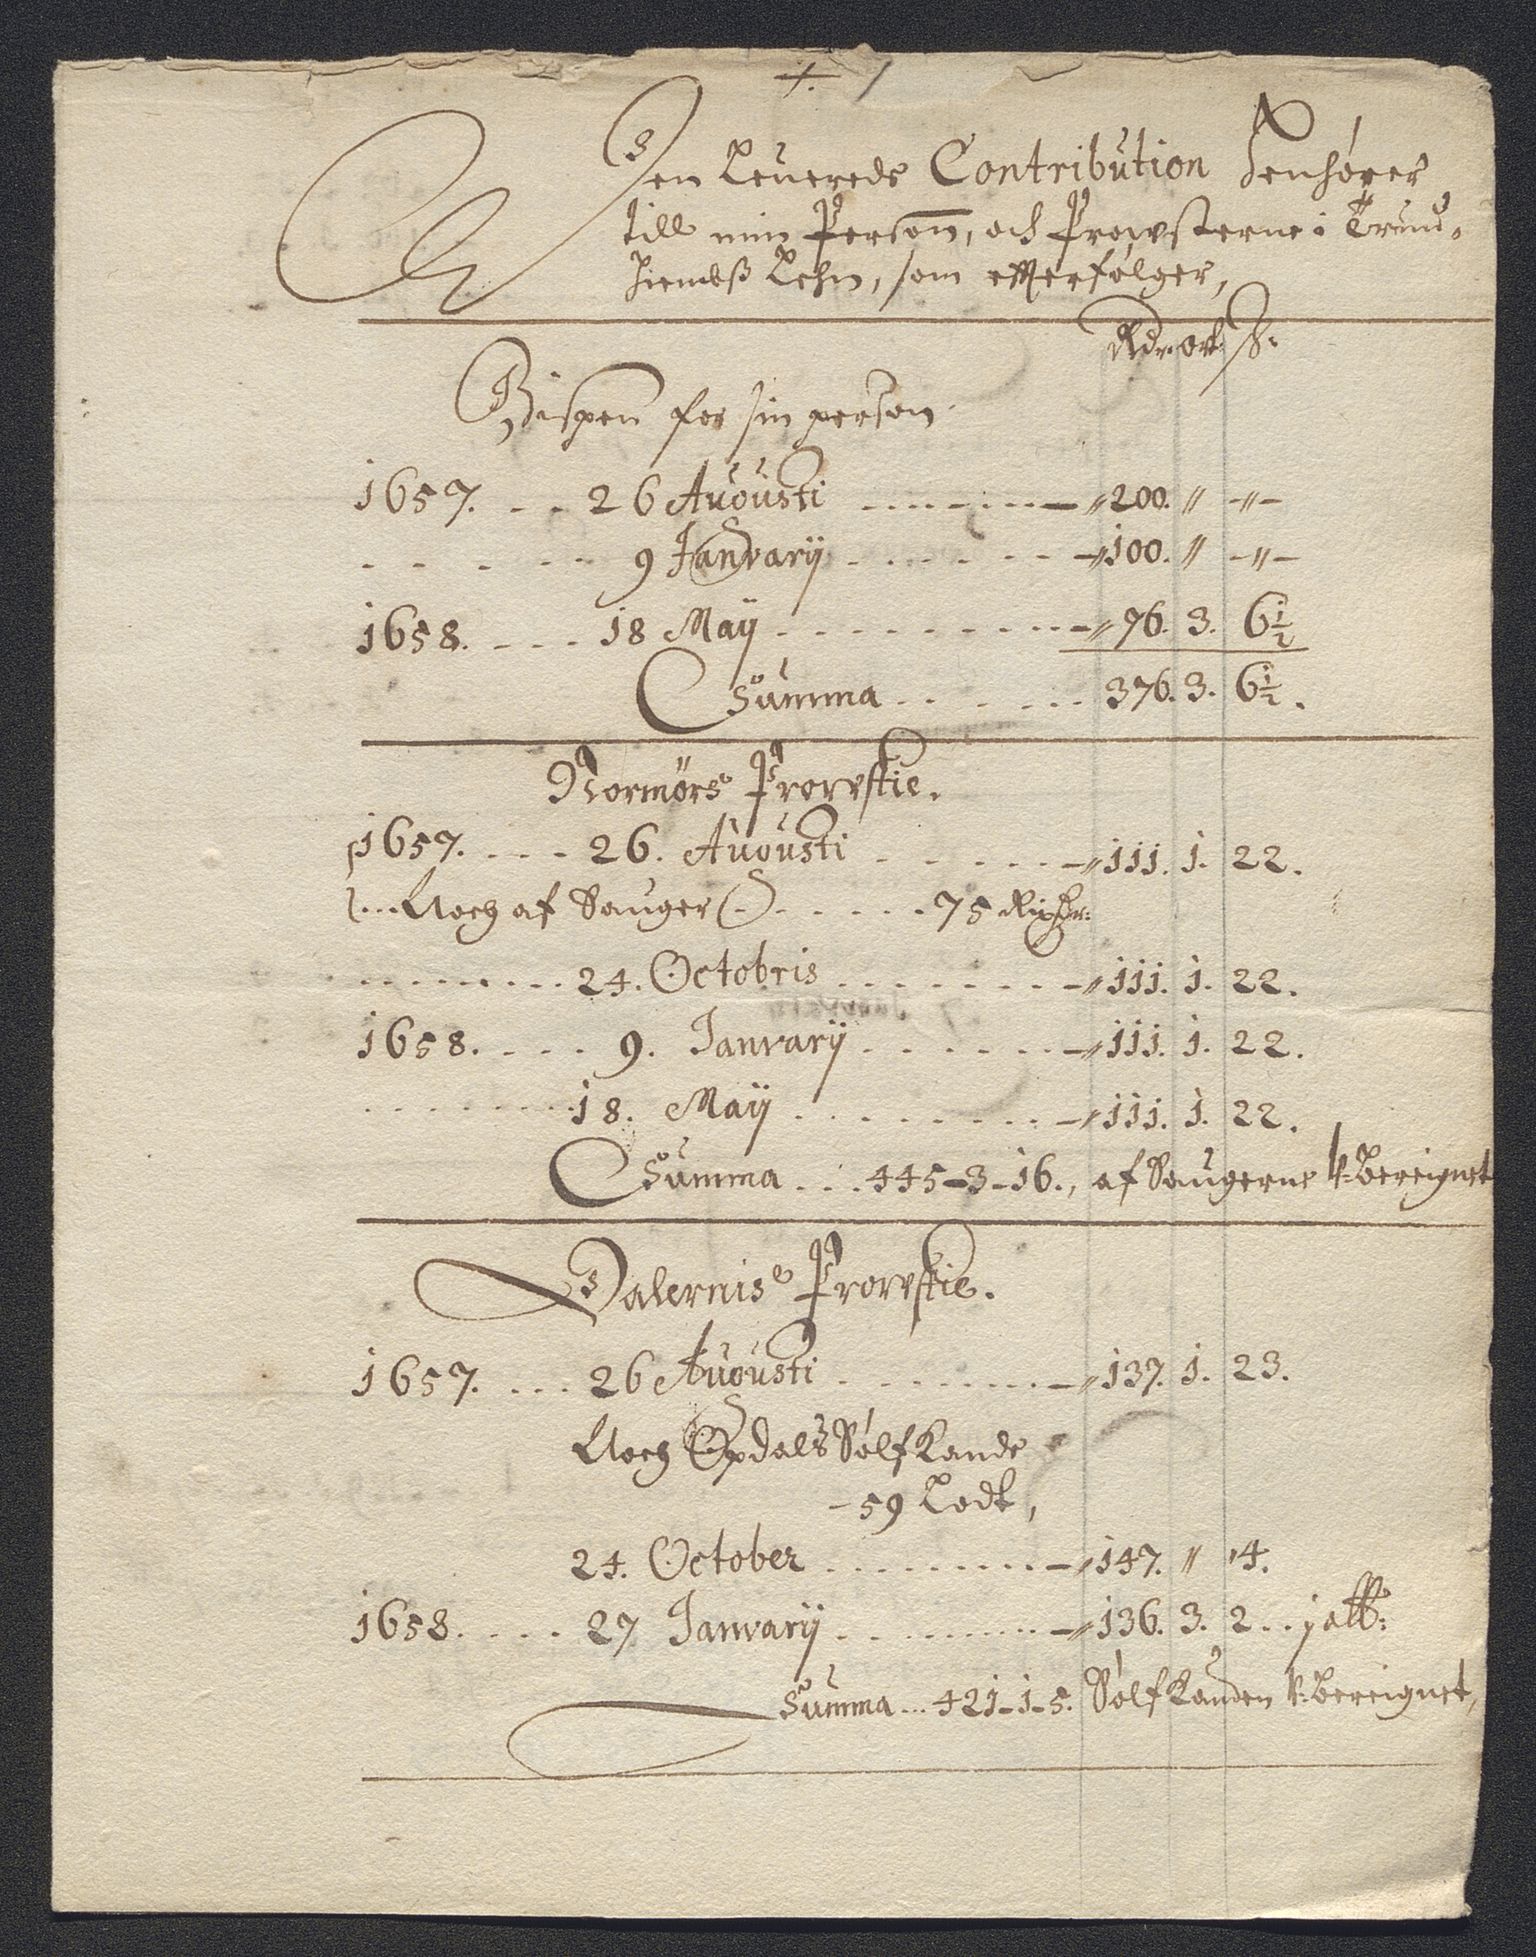 Den Leuerede Contribution henhører
till min Person, och Prowsterne i Trund-
hiembß Lehn, som effterfølger,
Rdr. ort. ß.
Bispen for sin person
1657. . . 26 Augusti . . . 200. " - " -
. . . . 9 Ianvarij . . . 100. " - " -
1658. . . . 18 Maij . . . 96. 3. 6½
Summa . . . 376. 3. 6½.
Normørs Prowstie.
1657. . . . 26. Augusti . . . 111. 1. 22.
. . . Noch af Sauger . . . 75 Rixdr:
. . . . 24. Octobris . . . 111. 1. 22.
1658. . . . 9. Ianvarij . . . 111. 1. 22.
. . . . 18. Maij . . . 111. 1. 22.
Summa . . . 445-3-16., af Saugerne bereignet
Dalernis Prowstie.
1657. . . . 26 Augusti . . . 137. 1. 23.
Noch Opdals Sølf Kande
- 59 Lodt,
24. October . . . 147. " 4.
1658. . . . 27 Ianvarij . . . 136. 3. 2 . . j alb:
Summa . . . 421-1-5. Sølf Kanden bereignet,